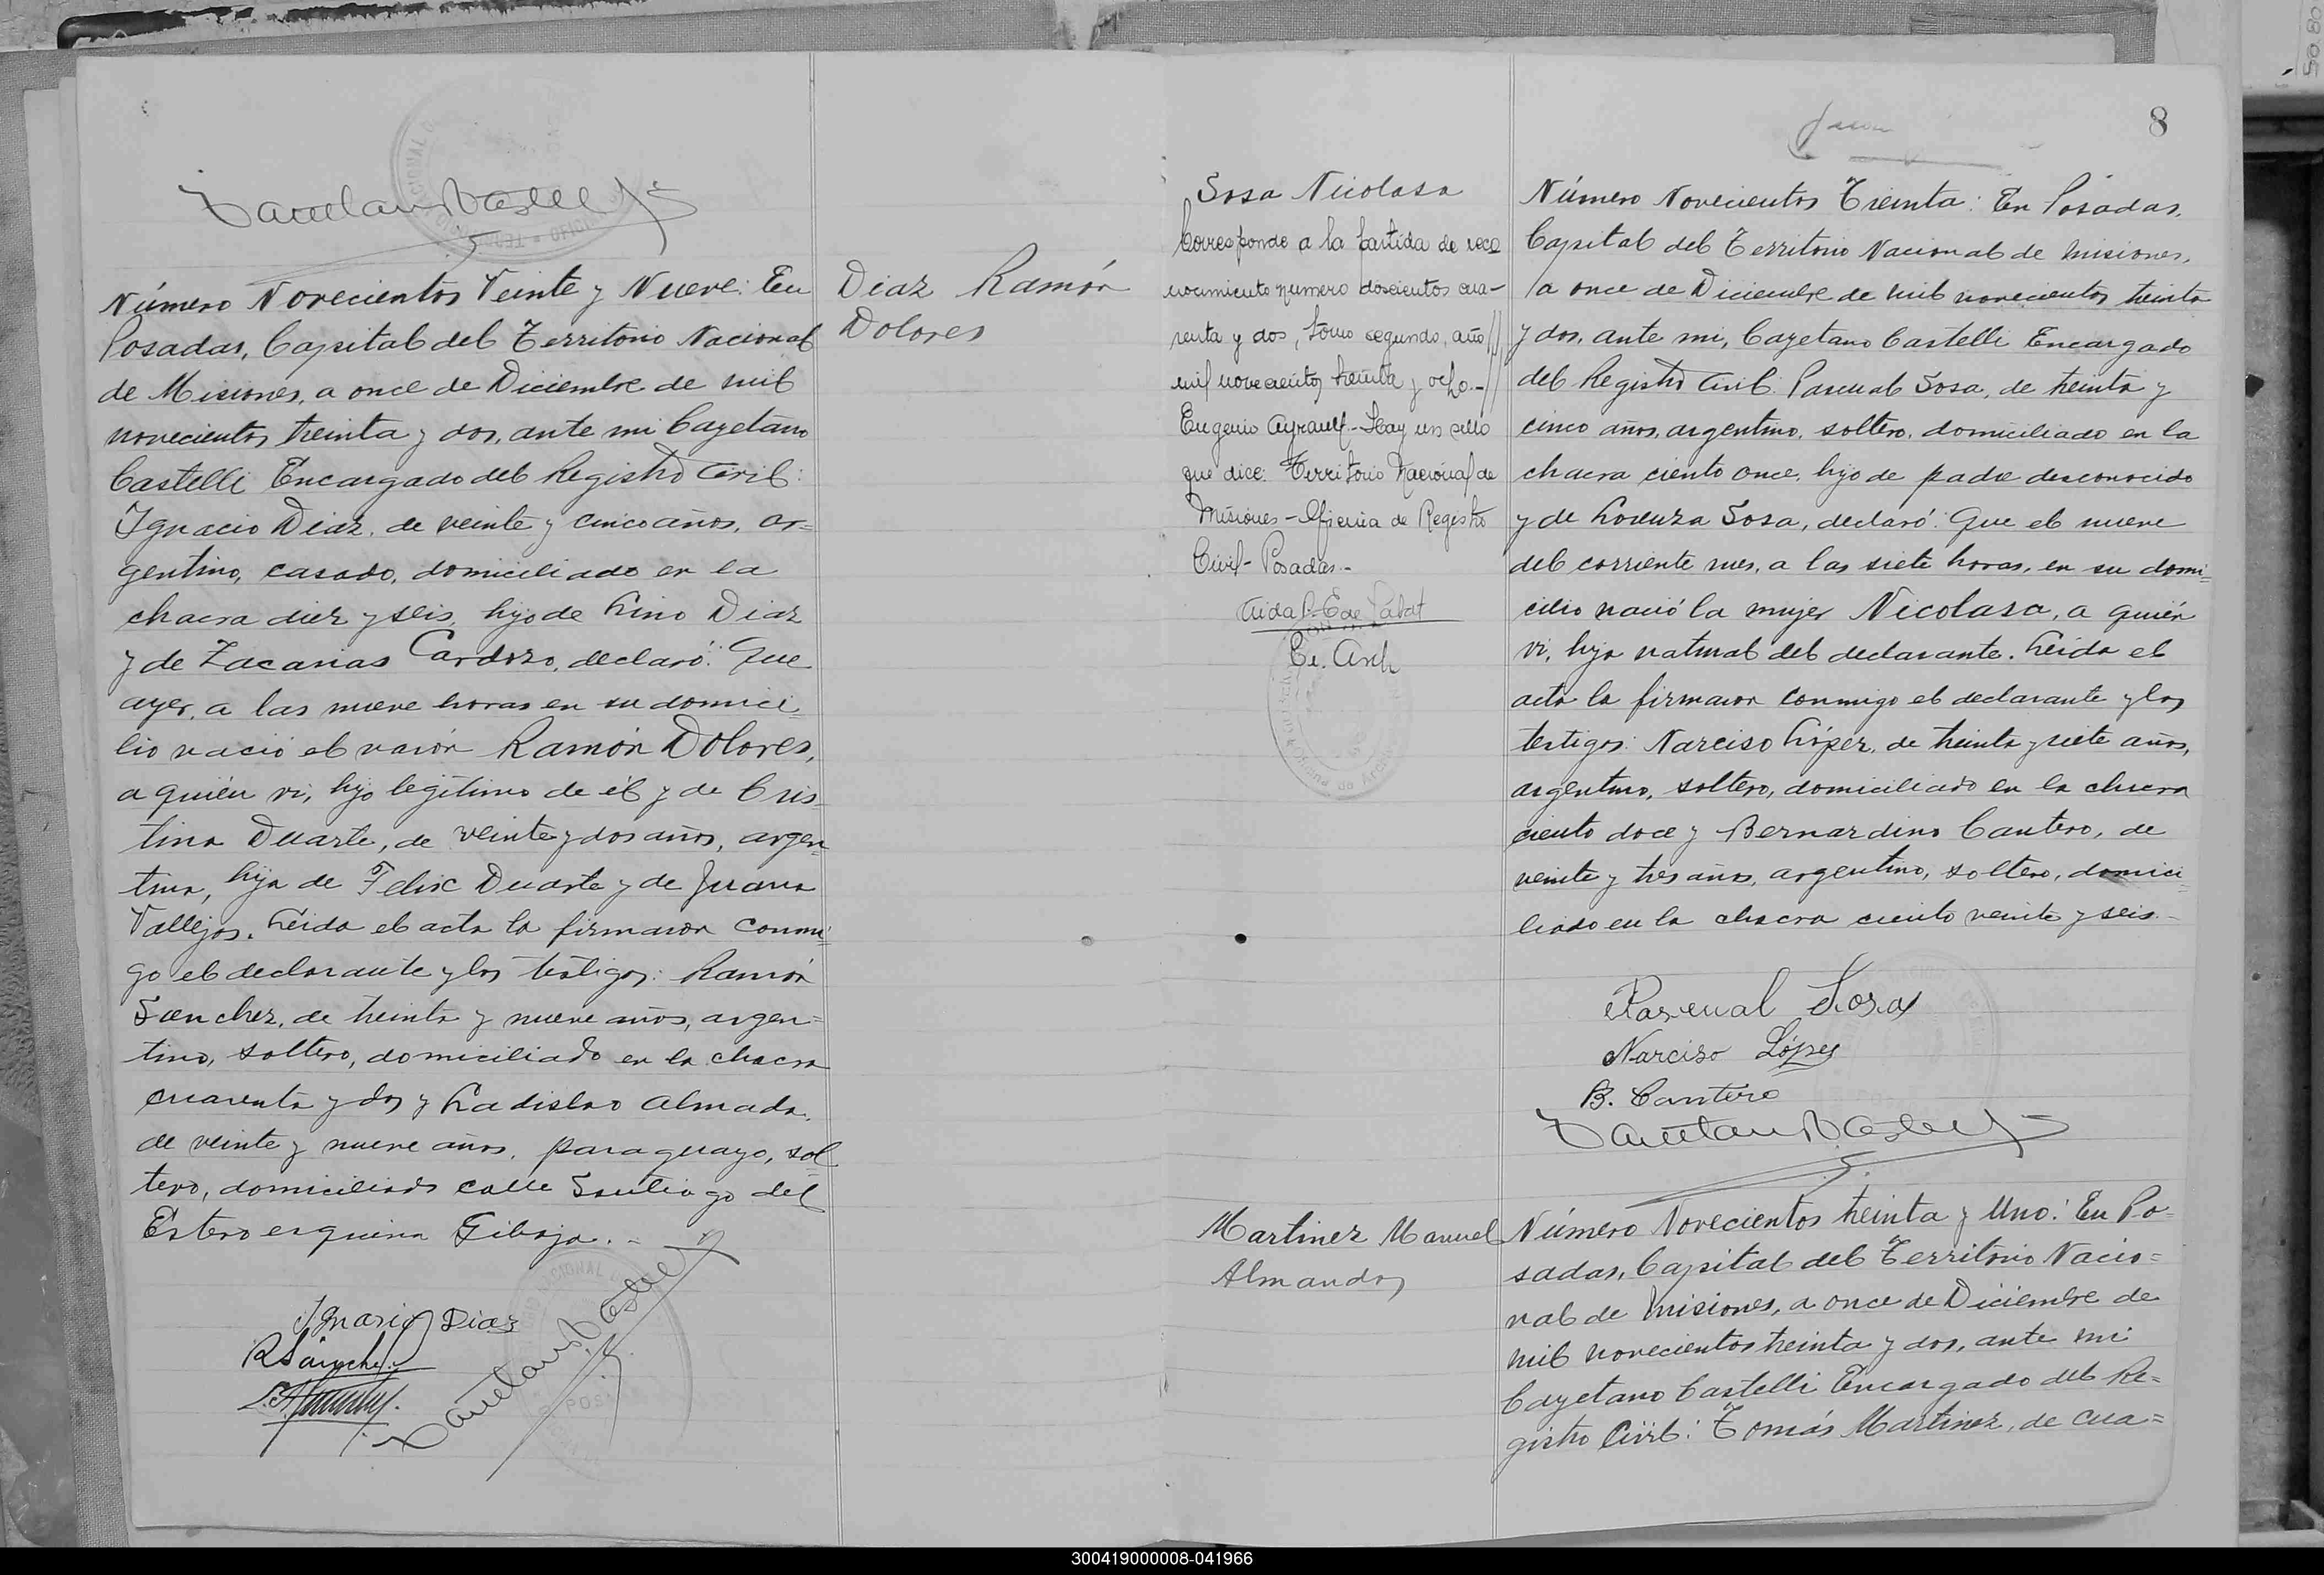 Número Novecientos Veinte y Nueve: En
Posadas, Capital del Territorio Nacional
de Misiones, a once de Diciembre de mil
novecientos treinta y dos, ante mi Cayetano
Castelli Encargado del Registro Civil:
Ignacio Diaz, de veinte y cinco años, ar=
gentino, casado, domiciliado en la
chacra diez y seis, hijo de Lino Diaz
y de Zacarias Cardozo, declaró: Que
ayer, a las nueve horas en su domici_
lio nació el varón Ramón Dolores,
a quién vi, hijo legítimo de él y de Cris_
tina Duarte, de veinte y dos años, argen_
tina, hija de Felix Duarte y de Juana
Vallejos. Leida el acta la firmaron conmi_
go el declarante y los testigos: Ramón
Sanchez, de treinta y nueve años, argen=
tino, soltero, domiciliado en la chacra
cuarenta y dos y Ladislao Almada,
de veinte y nueve años, paraguayo, sol_
tero, domiciliado calle Santiago del
Estero esquina Gibaja.-
Ignacio Diaz
R Sanchez
Diaz Ramón
Dolores
8
Sosa Nicolasa
Corresponde a la partida de reco
nocimiento numero doscientos cua-
renta y dos, tomo segundo, año
mil novecientos treinta y ocho.-
Eugenio Ayrault.- Hay un sello
que dice: Territorio Nacional de
Misiones - Oficina de Registro
Civil - Posadas.-
Número Novecientos Treinta: En Posadas,
Capital del Territorio Nacional de Misiones,
a once de Diciembre de mil novecientos treinta
y dos, ante mi, Cayetano Castelli Encargado
del Registro Civil: Pascual Sosa, de treinta y
cinco años, argentino, soltero, domiciliado en la
chacra ciento once, hijo de padre desconocido
y de Lorenza Sosa, declaró: Que el nueve
del corriente mes, a las siete horas, en su domi=
cilio nació la mujer Nicolasa, a quién
vi, hija natural del declarante. Leida el
acta la firmaron conmigo el declarante y los
testigos: Narciso López, de treinta y siete años,
argentino, soltero, domiciliado en la chacra
ciento doce y Bernardino Cantero, de
veinte y tres años, argentino, soltero, domici_
liado en la chacra ciento veinte y seis.-
Pascual Sosa
Narciso López
B. Cantero
Martinez Manuel
Almandos
Número Novecientos treinta y Uno: En Po=
sadas, Capital del Territorio Nacio=
nal de Misiones, a once de Diciembre de
mil novecientos treinta y dos, ante mi
Cayetano Castelli Encargado del Re=
gistro Civil: Tomás Martinez, de cua=
300419000008-041966